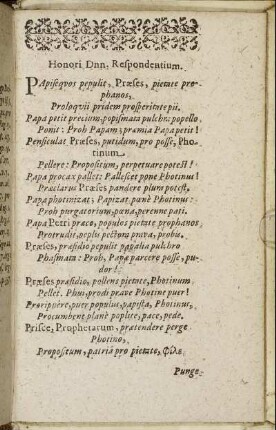 Honori Dnn. Respondentium.
PApiseqvos pepulit, Præses, pietate pro-
phanos,
Proloqvii pridem prosperitate pii.
Papa petit precium, popismata pulchra: popello
Ponit: Proh Papam; præmia Papa petit!
Pensiculat Præses, putidum, pro posse, Pho-
tinum
Pellere: Propositum, perpetuare potest!
Papa procax pallet: Pallescet pone Photinus!
Præclarus Præses pandere plura potest.
Papa photinizat; Papizat, pænè Photinus:
Proh purgatorium, pœna, perenne pati.
Papa Petri prece, populos pietate prophanos
Protrudit, populi pectora prava, proba.
Præses, præsidio pepulit papalia pulchro
Phasmata: Proh, Papa parcere posse, pu-
dor!
Præses præsidio, pollens pietate, Photinum
Pellit. Phui, prodi prave Photine puer!
Proripuere, puer populus, papista, Photinus,
Procumbent planè poplite, pace, pede.
Prisce, Prophetarum, prætendere perge
Photino,
Propositum, patriâ pro pietate,
Punge